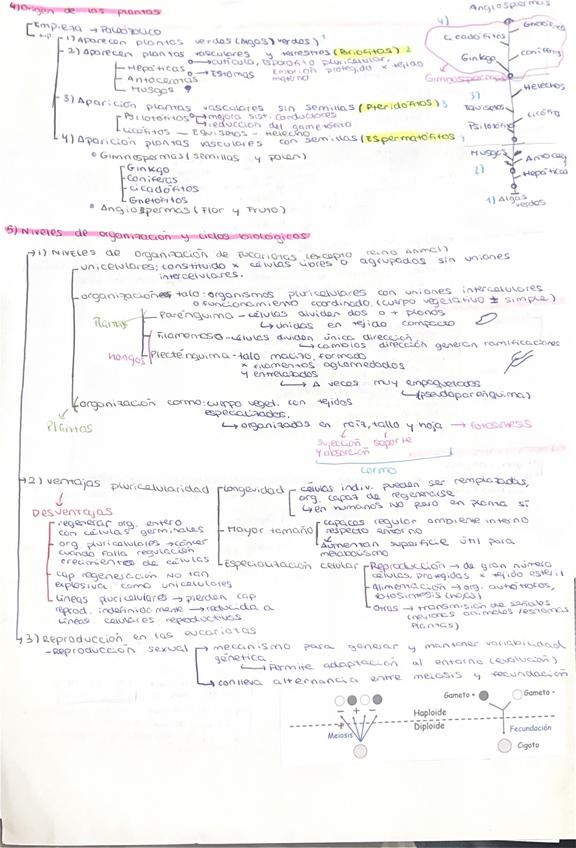 4) Origen de las plantas
Empieza → Paleozoico
1) Aparecen plantas verdes (Algas verdes) 1
2) Aparecen plantas vasculares y terrestres (Briofitas) 2
Hepáticas → cutícula, esporofito pluricelular,
Antoceros → Estomas embrión protegido x tejido
Musgos materno
3) Aparición plantas vasculares sin semillas (Pteridofitos) 3
Psilotofitos → mejora sist. conductores
→ reducción del gametofito
Licofitos - Equisetos - Helecho
4) Aparición plantas vasculares con semillas (Espermatofitos)
Gimnospermas (semillas y Polen)
Ginkgo
Coníferas
Cicadofitos
Gnetofitos
Angiospermas (Flor y Fruto)
Angiospermas
4)
Gnetofitos
Cicadofitos
Coníferas
Ginkgo
Gimnospermas
Helechos
3)
Equisetos
Licofitos
Psilotofitos
Musgos
Antoceros
2)
Hepáticas
1) Algas verdes
5) Niveles de organización y ciclos biológicos
1) Niveles de organización de eucariotas (excepto reino Animal)
unicelulares: constituido x células libres o agrupados sin uniones
intercelulares.
organizaciones talo: organismos pluricelulares con uniones intercelulares
o funcionamiento coordinado. (cuerpo vegetativo ± simple)
Plantas
Parénquima - células dividen dos o + planos
↳ unidas en tejido compacto
Filamentoso - células dividen única dirección
↳ cambios dirección generan ramificaciones
Hongos
Plecténquima - talo macizo, formado
x filamentos aglomerados
y entrelazados
↳ A veces muy empaquetados
↳ (pseudoparénquima)
organización cormo: cuerpo veget. con tejidos
especializados.
Plantas
↳ organizados en raíz, tallo y hoja → fotosíntesis
sujección soporte
y absorción
cormo
2) ventajas pluricelularidad
Longevidad
células indiv. pueden ser remplazadas,
org. capaz de regenerse
↳ en humanos no pero en planta sí
Mayor tamaño
capaces regular ambiente interno
respecto entorno
Aumentan superficie útil para
metabolismo
Especialización celular
Reproducción → de gran número
células, protegidas x tejido estéril
Alimentación → org. autótrofos,
fotosíntesis (hojas)
Otros → transmisión de señales
(neuronas animales/estomas
plantas)
Desventajas
regenerar org. entero
con células germinales
org. pluricelulares → cáncer
cuando falla regulación
crecimientos de células
cap regeneración no tan
explosiva como unicelulares
líneas pluricelulares → pierden cap
reprod. indefinidamente → reducida a
líneas celulares reproductivas
3) Reproducción en las eucariotas
- Reproducción sexual
→ mecanismo para generar y mantener variabilidad
genética.
↳ Permite adaptación al entorno (evolución)
→ conlleva alternancia entre meiosis y fecundación
Gameto + Gameto -
- + -
Haploide
Diploide
Meiosis
Fecundación
Cigoto